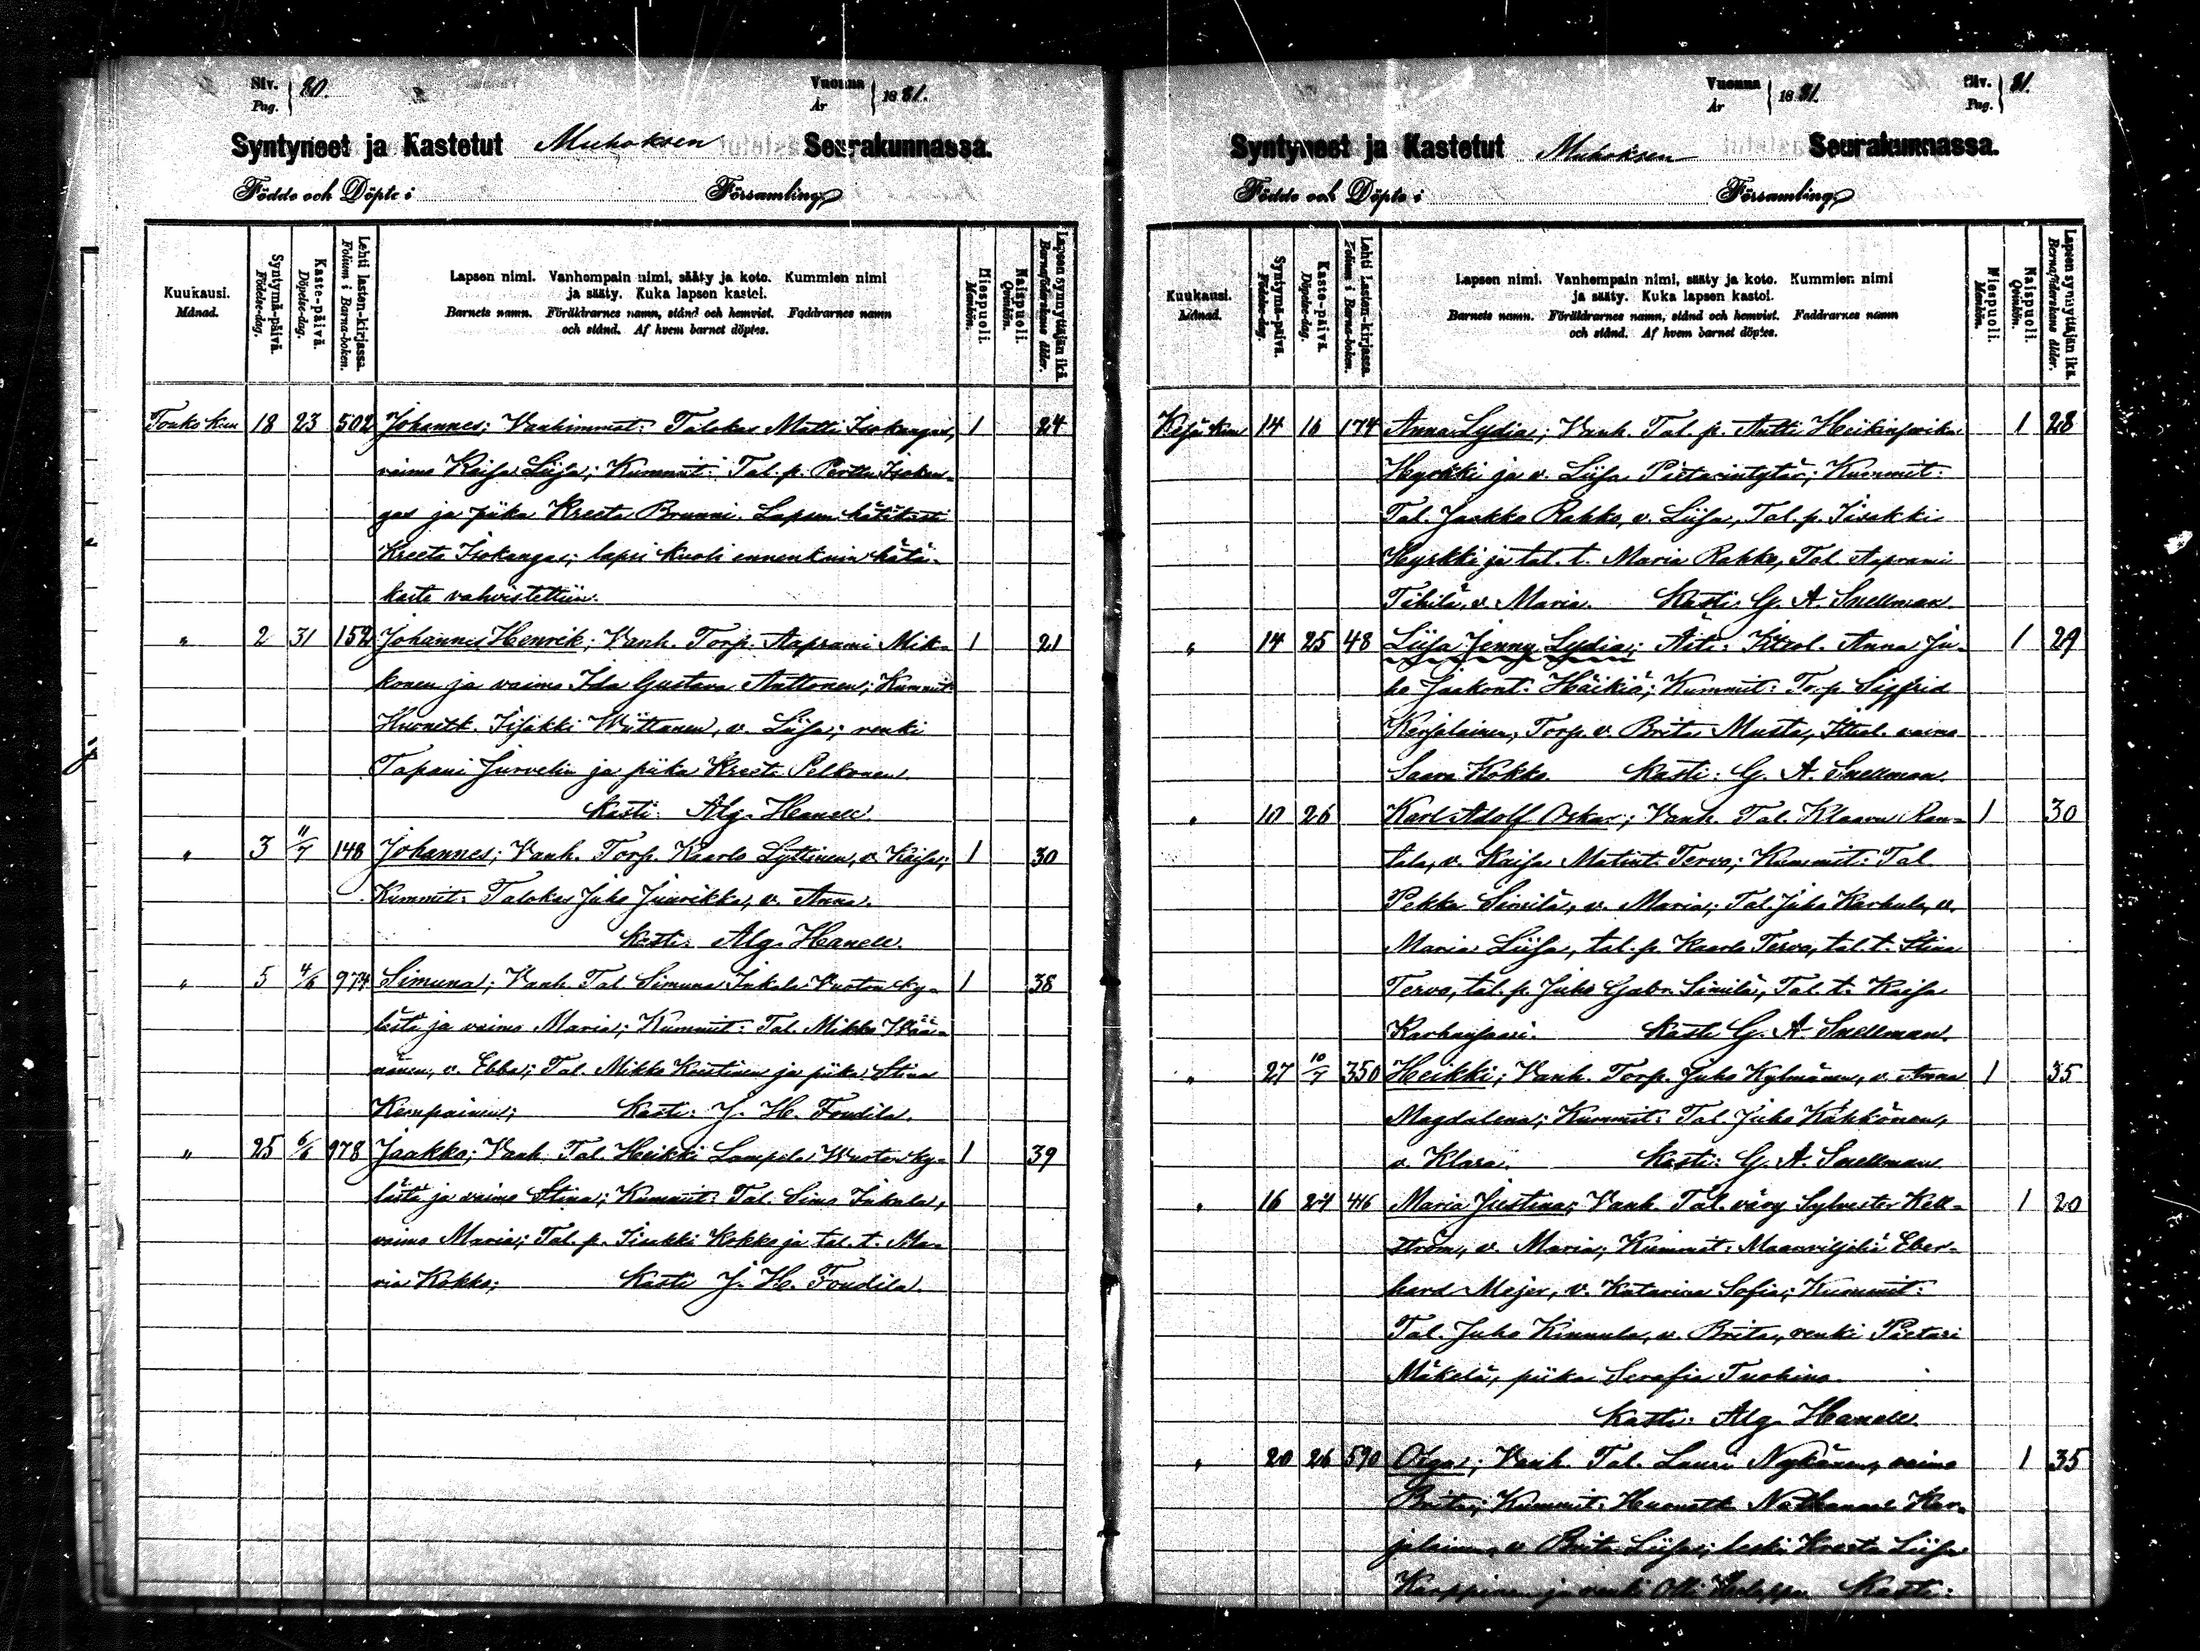 Siv. Pag. 80.
Vuonna År 1881.
Syntyneet ja Kastetut Muhoksen Seurakunnassa.
Födde och Döpte i Församling.
Kuukausi. Månad.
Syntymä-päivä. Födelse-dag.
Kaste-päivä. Döpelse-dag.
Lehti lasten-kirjassa. Folium i Barna-boken.
Lapsen nimi. Vanhempain nimi, sääty ja koto. Kummien nimi
ja sääty. Kuka lapsen kastoi.
Barnets namn. Föräldrarnes namn, stånd och hemvist. Faddrarnes namn
och stånd. Af hvem barnet döptes.
Miespuoli. Mankön.
Naispuoli. Qvinkön.
Lapsen synnyttäjän ikä. Barnaföderskans ålder.
Touko Kuu 18 23 502 Johannes; Vanhimmat: Talokas Matti Isokangas, 1 24
vaimo Kaisa Liisa; Kummit: Tal. p. Perttu Isokan-
gas ja piika Kreeta Brunni. Lapsen hätäkasti
Kreeta Isokangas; lapsi kuoli ennenkuin hätä-
kaste vahvistettiin.
" 2 31 152 Johannes Henrik; Vanh. Torp. Aaprami Mik- 1 21
konen ja vaimo Ida Gustava Anttonen; Kummit:
Huonetk. Iisakki Wiittanen, v. Liisa; renki
Tapani Jurvelin ja piika Kreeta Pelkonen.
Kasti: Alg. Hanell.
" 3 11/7 148 Johannes; Vanh. Torp. Kaarlo Lyttinen, v. Kaisa; 1 30
Kummit: Talokas Juho Juurikka, v. Anna.
Kasti: Alg. Hanell.
" 5 4/6 974 Simuna; Vanh. Tal. Simuna Inkala Vuoton ky- 1 38
lästä ja vaimo Maria; Kummit: Tal. Mikko Wää-
nänen, v. Ebba; Tal. Mikko Kristinen ja piika Stina
Kemppainen; Kasti: J. H. Fondila.
" 25 6/6 978 Jaakko; Vanh. Tal. Heikki Lampela Wuoton ky- 1 39
lästä ja vaimo Stina; Kummit: Tal. Simo Inkala,
vaimo Maria; Tal. p. Iisakki Kokko ja tal. t. Ma-
ria Kokko; Kasti J. H. Fondila.
Vuonna År 1881.
Siv. Pag. 81.
Syntyneet ja Kastetut Muhoksen Seurakunnassa.
Födde och Döpte i Församling.
Kuukausi. Månad.
Syntymä-päivä. Födelse-dag.
Kaste-päivä. Döpelse-dag.
Lehti Lasten-kirjassa. Folium i Barna-boken.
Lapsen nimi. Vanhempain nimi, sääty ja koto. Kummien nimi
ja sääty. Kuka lapsen kastoi.
Barnets namn. Föräldrarnes namn, stånd och hemvist. Faddrarnes namn
och stånd. Af hvem barnet döptes.
Miespuoli. Mankön.
Naispuoli. Qvinkön.
Lapsen synnyttäjän ikä. Barnaföderskans ålder.
Kesä Kuu 14 16 174 Anna Lydia; Vanh. Tal. p. Antti Heikinpoika 1 28
Hyrkki ja v. Liisa Pietarintytär; Kummit:
Tal. Jaakko Rahko, v. Liisa, Tal. p. Iisakki
Hyrkki ja tal. t. Maria Rahko, Tal. Aaprami
Tihilä, v. Maria. Kasti: G. A. Snellman.
" 14 25 48 Liisa Jenny Lydia; Äiti: Itsel. Anna Ju- 1 29
ho Jaakont: Häikiö; Kummit: Torp. Sigfrid
Kerjalainen, Torp. v. Brita Musta, Itsel. vaimo
Saara Kokko. Kasti: G. A. Snellman.
" 10 26 Karl Adolf Oskar; Vanh. Tal. Klaavu Ran- 1 30
tala, v. Kaisa Matint: Tervo; Kummit: Tal.
Pekka Similä, v. Maria; Tal. Juho Karhula, v.
Maria Liisa, tal. p. Kaarlo Tervo, tal. t. Stina
Tervo, tal. p. Juho Gabr. Similä, Tal. t. Kaisa
Karhunsaari. Kasti G. A. Snellman.
" 27 10/7 350 Heikki; Vanh. Torp. Juho Kylmänen, v. Anna 1 35
Magdalena; Kummit: Tal. Juho Kähkönen,
v. Klara. Kasti: G. A. Snellman.
" 16 24 416 Maria Justina; Vanh. Tal. vävy Sylvester Kell- 1 20
ström, v. Maria; Kummit: Maanviljeliä Eber-
hard Mejer, v. Katarina Sofia; Kummit:
Tal. Juho Kinnula, v. Brita, renki Pietari
Mäkelä, piika Serafia Tuohino.
Kasti: Alg. Hanell.
" 20 26 590 Olga; Vanh. Tal. Lauri Nykänen, vaimo 1 35
Brita; Kummit: Huonetk Nathanael Ker-
jalainen, v. Brita Liisa; leski Kreeta Liisa
Karppinen ja renki Olli Kasti: